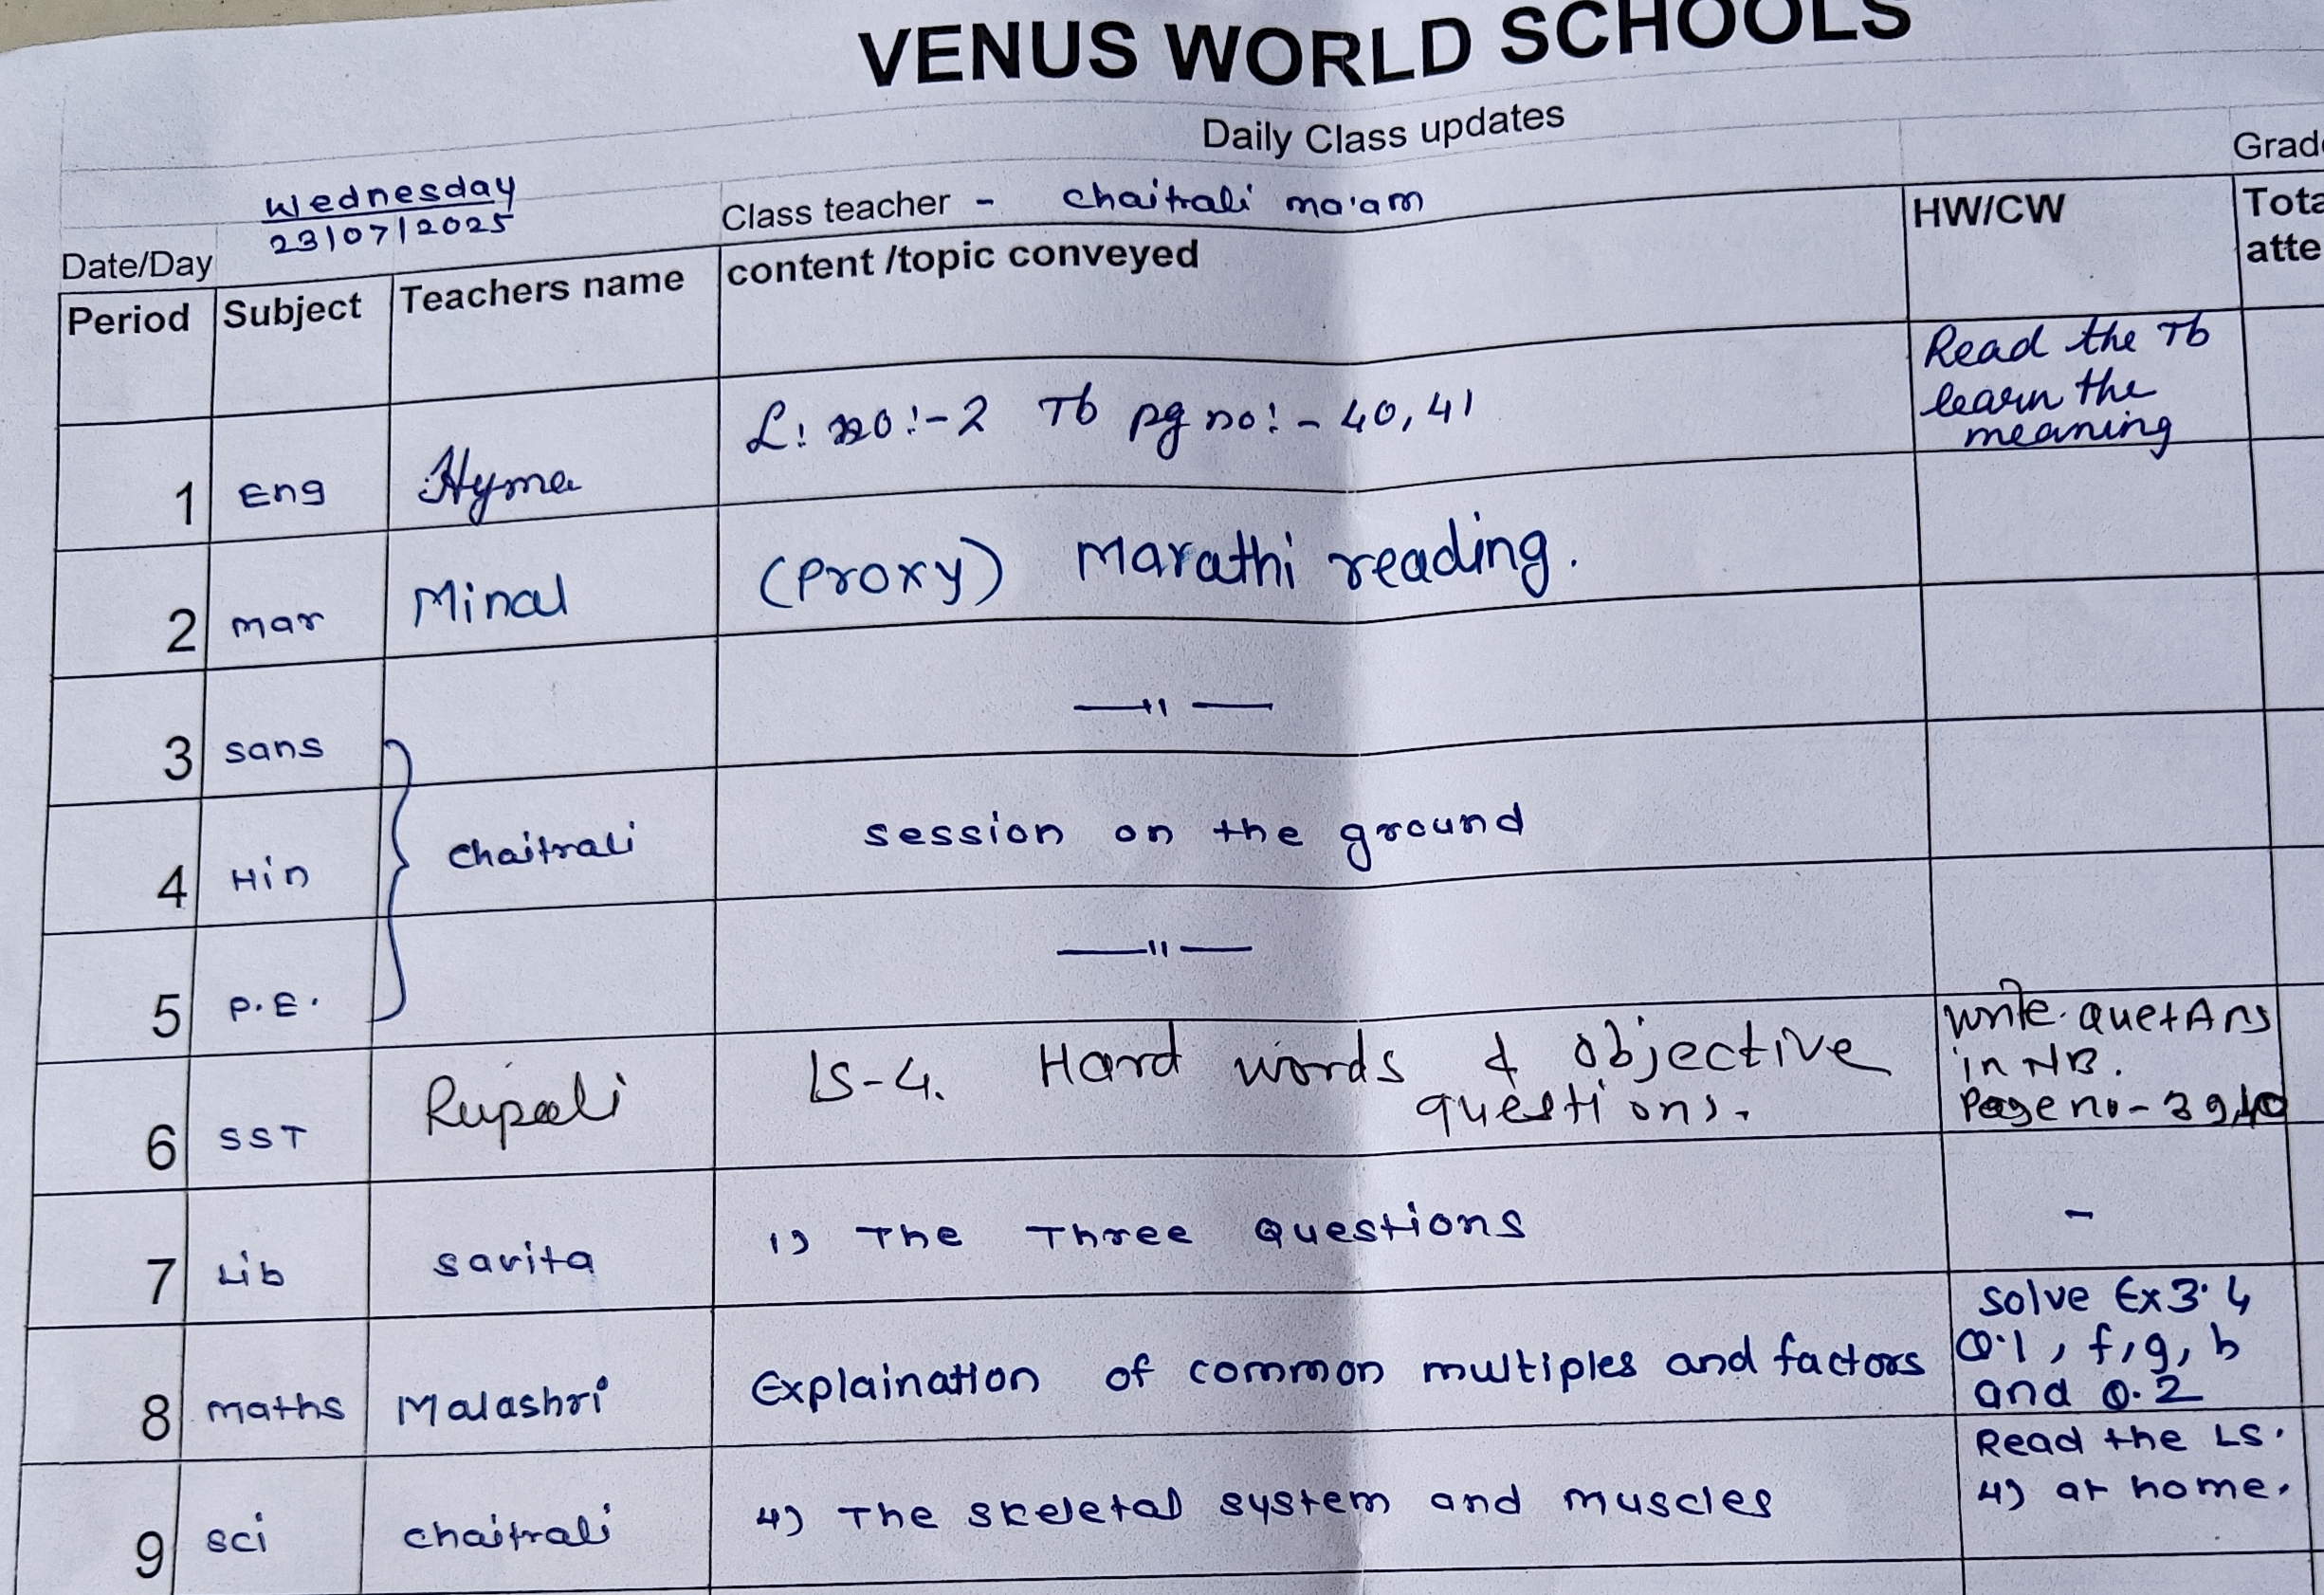 VENUS WORLD SCHOOLS
Daily Class updates
Wednesday
Date/Day 23/07/2025 Class teacher - chaitrali ma'am Grade
Period Subject Teachers name content /topic conveyed HW/CW Tota
atte
1 Eng Hyma L: no:-2 Tb pg no:- 40,41 Read the Tb
learn the
meaning
2 mar Minal (Proxy) Marathi reading.
3 sans —"—
4 Hin chaitrali session on the ground
5 P.E. —"—
6 SST Rupali LS-4. Hard words & objective
questions. write que+Ans
in NB.
Page no - 39,40
7 Lib savita 1) The Three Questions -
8 maths Malashri Explaination of common multiples and factors solve Ex 3.4
Q.1, f, g, h
and Q.2
9 sci chaitrali 4) The skeletal system and muscles Read the LS.
4) at home.